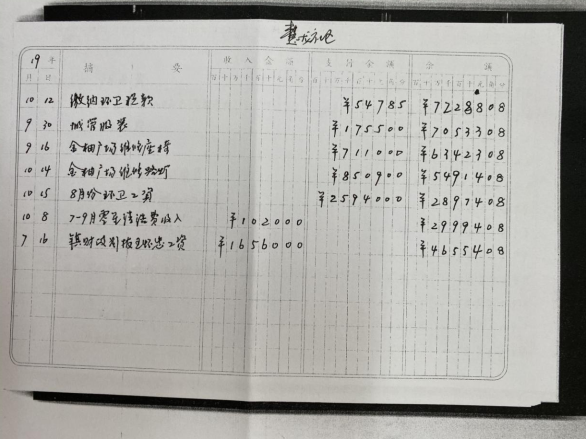 19年 摘要 收入金额 支付金额 余额
月 日
10 12 缴纳环卫税款 ¥54785 ¥7228808
9 30 城管服装 ¥175500 ¥7053308
9 16 金柚广场维修座椅 ¥711000 ¥6342308
10 14 金柚广场维修路灯 ¥850900 ¥5491408
10 15 8月份环卫工资 ¥2594000 ¥2897408
10 8 7-9月零星清洁费收入 ¥102000 ¥2999408
7 16 镇财政划拨 工资 ¥1656000 ¥4655408